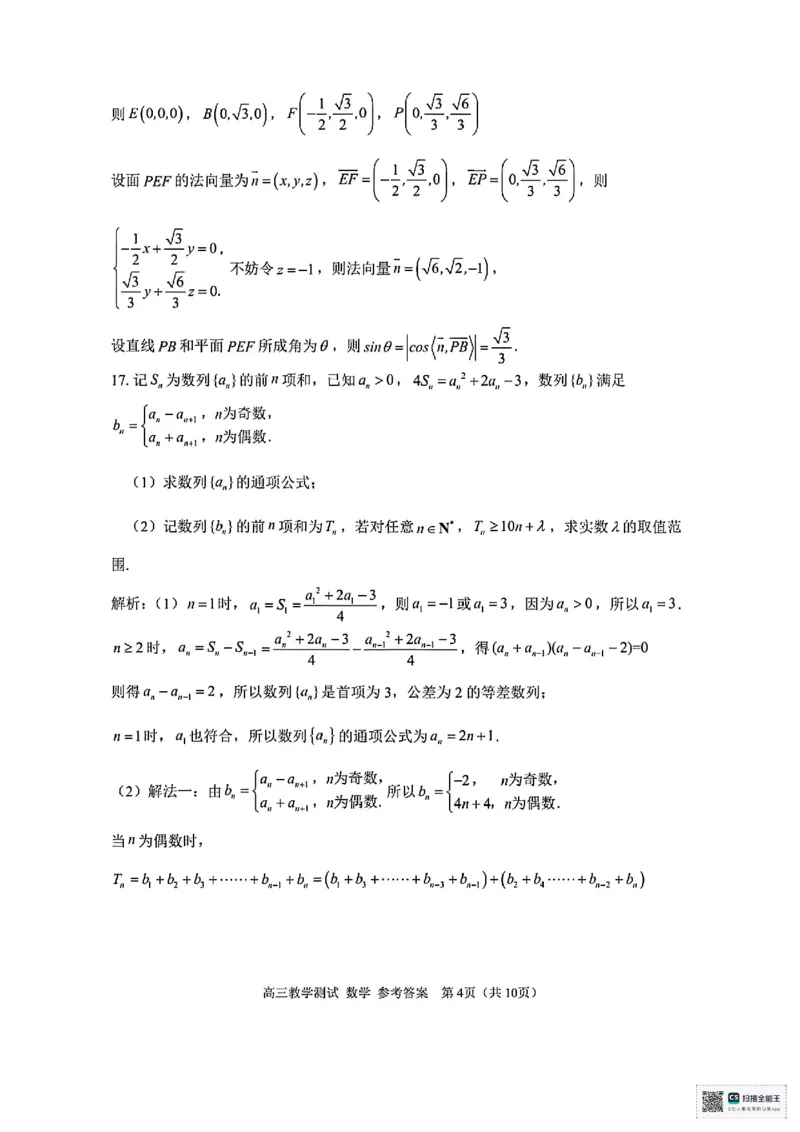 则E(0,0,0)，B(0,√3,0)，F(-1/2,√3/2,0)，P(0,√3/3,√6/3)
设面PEF的法向量为n⃗=(x,y,z)，EF⃗=(-1/2,√3/2,0)，EP⃗=(0,√3/3,√6/3)，则
{-1/2x+√3/2y=0，
√3/3y+√6/3z=0. 不妨令z=-1，则法向量n⃗=(√6,√2,-1)，
设直线PB和平面PEF所成角为θ，则sinθ=|cos⟨n⃗,PB⃗⟩|=√3/3.
17.记Sₙ为数列{aₙ}的前n项和，已知aₙ>0，4Sₙ=aₙ²+2aₙ-3，数列{bₙ}满足
bₙ={aₙ-aₙ₊₁，n为奇数，
aₙ+aₙ₊₁，n为偶数.
（1）求数列{aₙ}的通项公式；
（2）记数列{bₙ}的前n项和为Tₙ，若对任意n∈N*，Tₙ≥10n+λ，求实数λ的取值范
围.
解析：（1）n=1时，a₁=S₁=(a₁²+2a₁-3)/4，则a₁=-1或a₁=3，因为aₙ>0，所以a₁=3.
n≥2时，aₙ=Sₙ-Sₙ₋₁=(aₙ²+2aₙ-3)/4-(aₙ₋₁²+2aₙ₋₁-3)/4，得(aₙ+aₙ₋₁)(aₙ-aₙ₋₁-2)=0
则得aₙ-aₙ₋₁=2，所以数列{aₙ}是首项为3，公差为2的等差数列；
n=1时，a₁也符合，所以数列{aₙ}的通项公式为aₙ=2n+1.
（2）解法一：由bₙ={aₙ-aₙ₊₁，n为奇数，aₙ+aₙ₊₁，n为偶数. 所以bₙ={-2，n为奇数，4n+4，n为偶数.
当n为偶数时，
Tₙ=b₁+b₂+b₃+⋯⋯+bₙ₋₁+bₙ=(b₁+b₃+⋯⋯+bₙ₋₃+bₙ₋₁)+(b₂+b₄⋯⋯+bₙ₋₂+bₙ)
高三教学测试 数学 参考答案 第4页（共10页）
CS 扫描全能王
3亿人都在用的扫描App